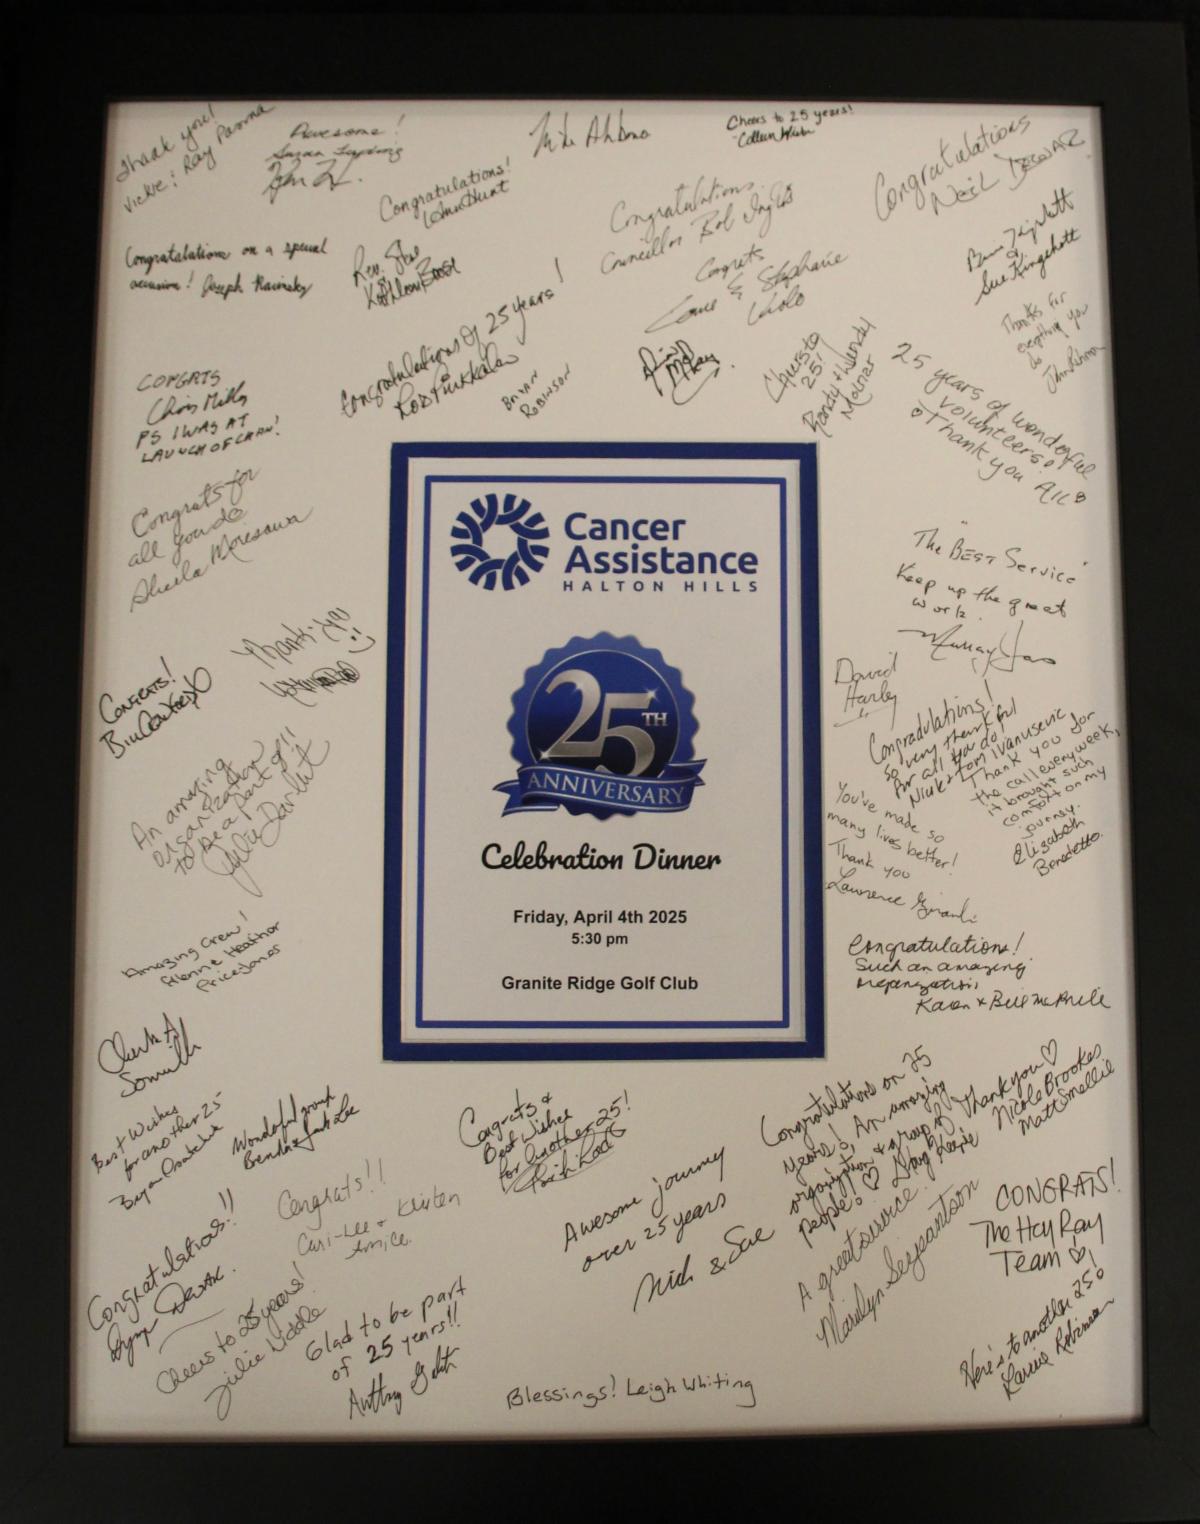 Thank you!
Vickie & Ray
Awesome!
Susan
Mike
Cheers to 25 years!
Colleen
Congratulations
Neil Dewar
Congratulations!
Hunt
Congratulations
Councillor Bob Inglis
Congratulations on a special
occasion! Joseph
Rev. Stu
&
Kathleen
Congrats
& Stephanie
&
Sue Kingshott
Thanks for
everything you
do
John
Congratulations Of 25 years!
Rob
Brian
Robinson
Cheers to
25!
Randy & Wendy
Molnar
25 years of wonderful
volunteers!
♡ Thank you All
CONGRATS
Chris Mills
PS I WAS AT
LAUNCH OF CAHH!
Congrats for
all you do
Sheila
Cancer
Assistance
HALTON HILLS
25TH
ANNIVERSARY
Celebration Dinner
Friday, April 4th 2025
5:30 pm
Granite Ridge Golf Club
The "BEST Service"
Keep up the great
work.
Murray
David
Harley
Thanks-you
Congrats!
Bill
Congradulations!
So very thankful
for all you do!
Nick & Tom Ivanusevic
Thank you for
the call every week,
it brought such
comfort on my
journey.
Elizabeth
Benedetto.
An amazing
organization
to be a part of!!
Julie
You've made so
many lives better!
Thank you
Lawrence
Amazing Crew!
Heather
Price-Jones
Congratulations!
Such an amazing
organization,
Karen & Bill McPhile
Best Wishes
for another 25
Bryan
Wonderful group
Brenda & Jack Lee
Congrats &
Best wishes
for another 25!
Congratulations on 25
years! An amazing
organization & group of
people! ♡ Doug
Thank you ♡
Nicole Brookes
Matt Smellie
Congrats!!
Cari-Lee & Kristen
Awesome journey
over 25 years
Nick & Sue
A great service
Marilyn Serjeantson
CONGRATS!
The Hey Ray
Team ♡!
Congratulations!!
Lynn Dewar.
Cheers to 25 years!
Julie Liddle
Glad to be part
of 25 years!!
Anthony
Here's to another 25!
Robinson
Blessings! Leigh Whiting